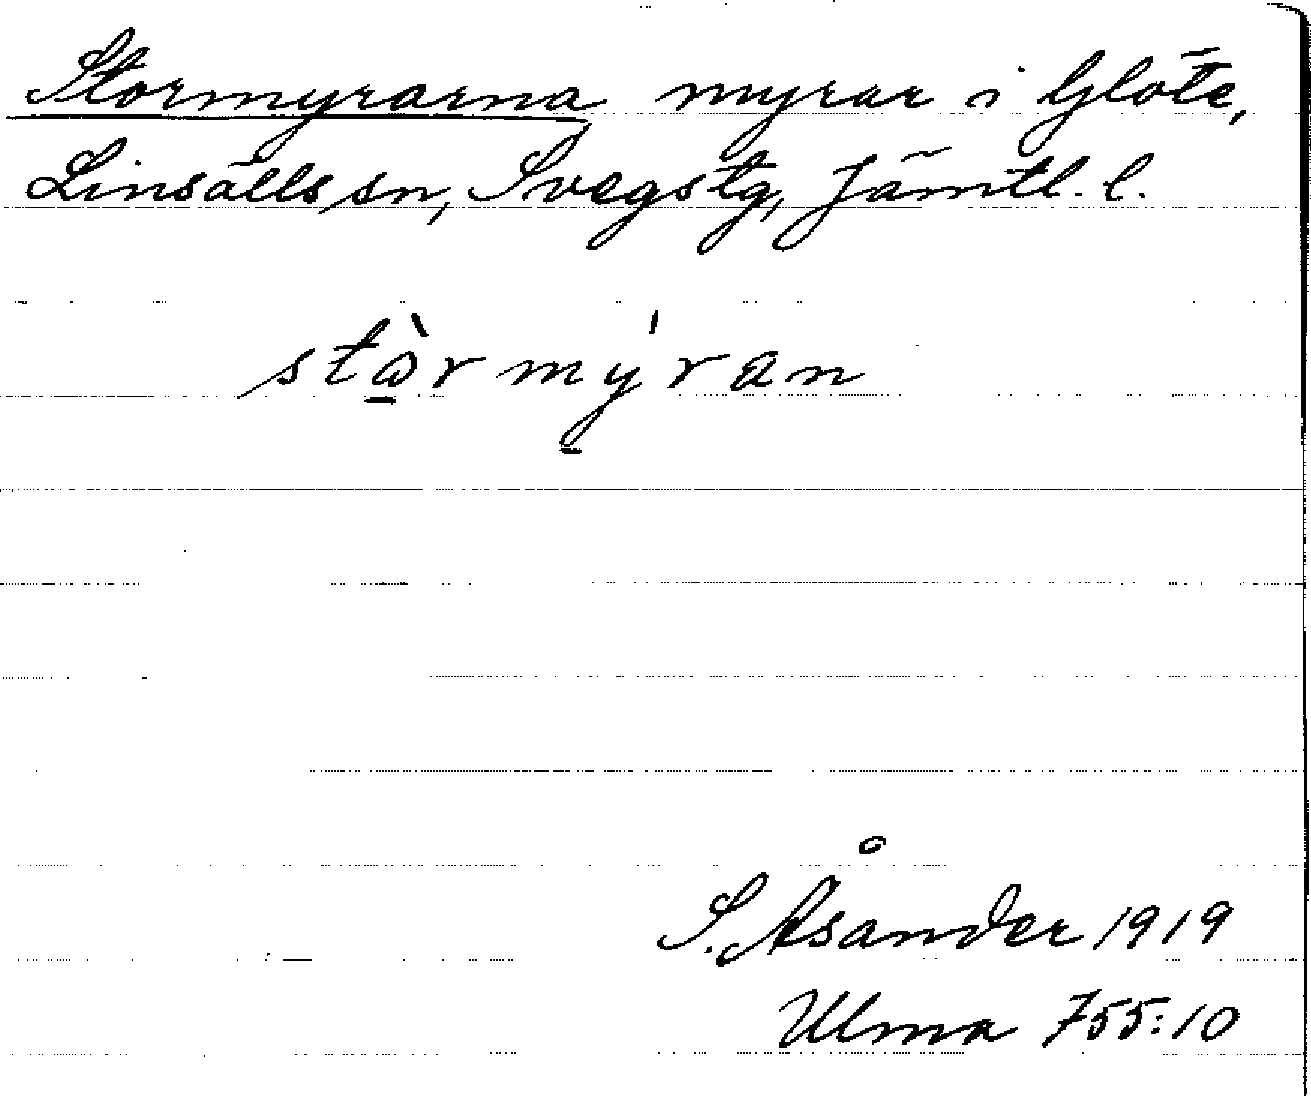 Stormyrarna myrar i Glöte,
Linsälls sn, Svegs tg, Jämtl. l.
stὼ̱rmy̱̍ran
S. Åsander 1919
Ulma 755:10